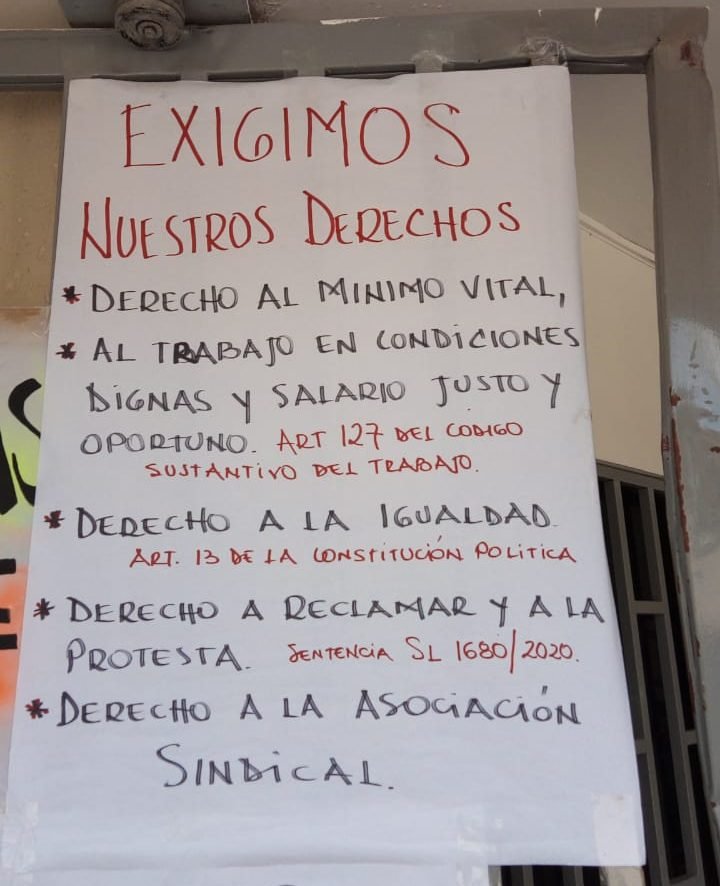 EXIGIMOS
NUESTROS DERECHOS
* DERECHO AL MINIMO VITAL,
* AL TRABAJO EN CONDICIONES
DIGNAS Y SALARIO JUSTO Y
OPORTUNO. ART 127 DEL CODIGO
SUSTANTIVO DEL TRABAJO.
* DERECHO A LA IGUALDAD.
ART. 13 DE LA CONSTITUCIÓN POLITICA
* DERECHO A RECLAMAR Y A LA
PROTESTA. SENTENCIA SL 1680/2020.
* DERECHO A LA ASOCIACIÓN
SINDICAL.